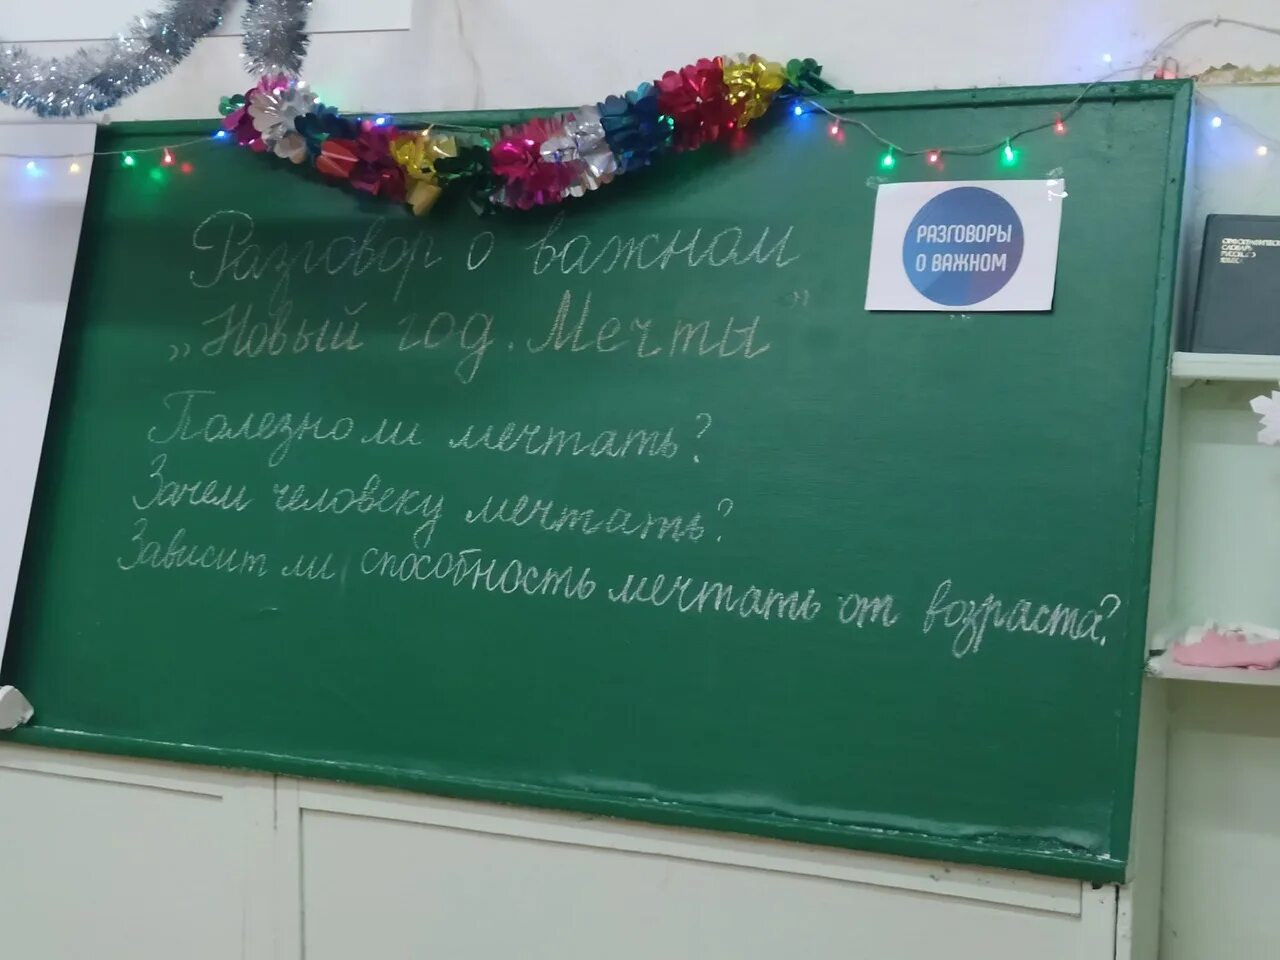 Разговор о важном
„Новый год. Мечты"
Полезно ли мечтать?
Зачем человеку мечтать?
Зависит ли способность мечтать от возраста?
РАЗГОВОРЫ
О ВАЖНОМ
СЛОВАРЬ